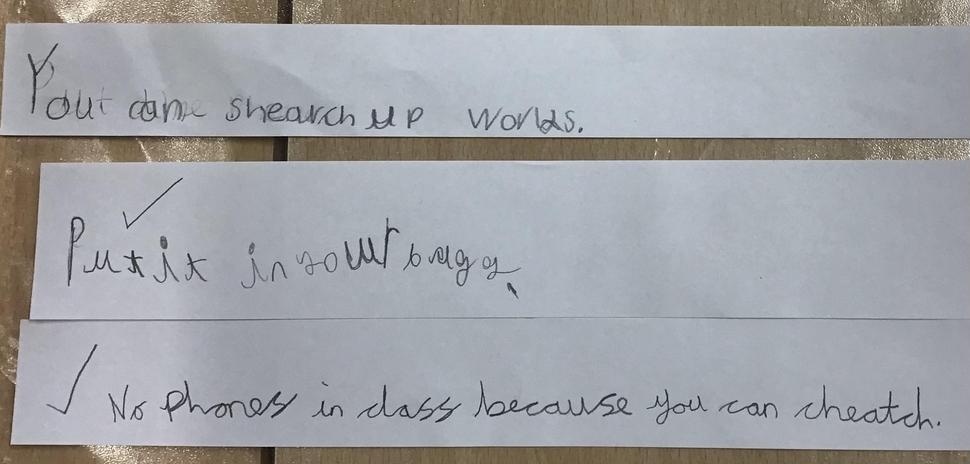 Yout came shearch up worlds.
Put it in your bagg.
No phones in class because you can cheatch.